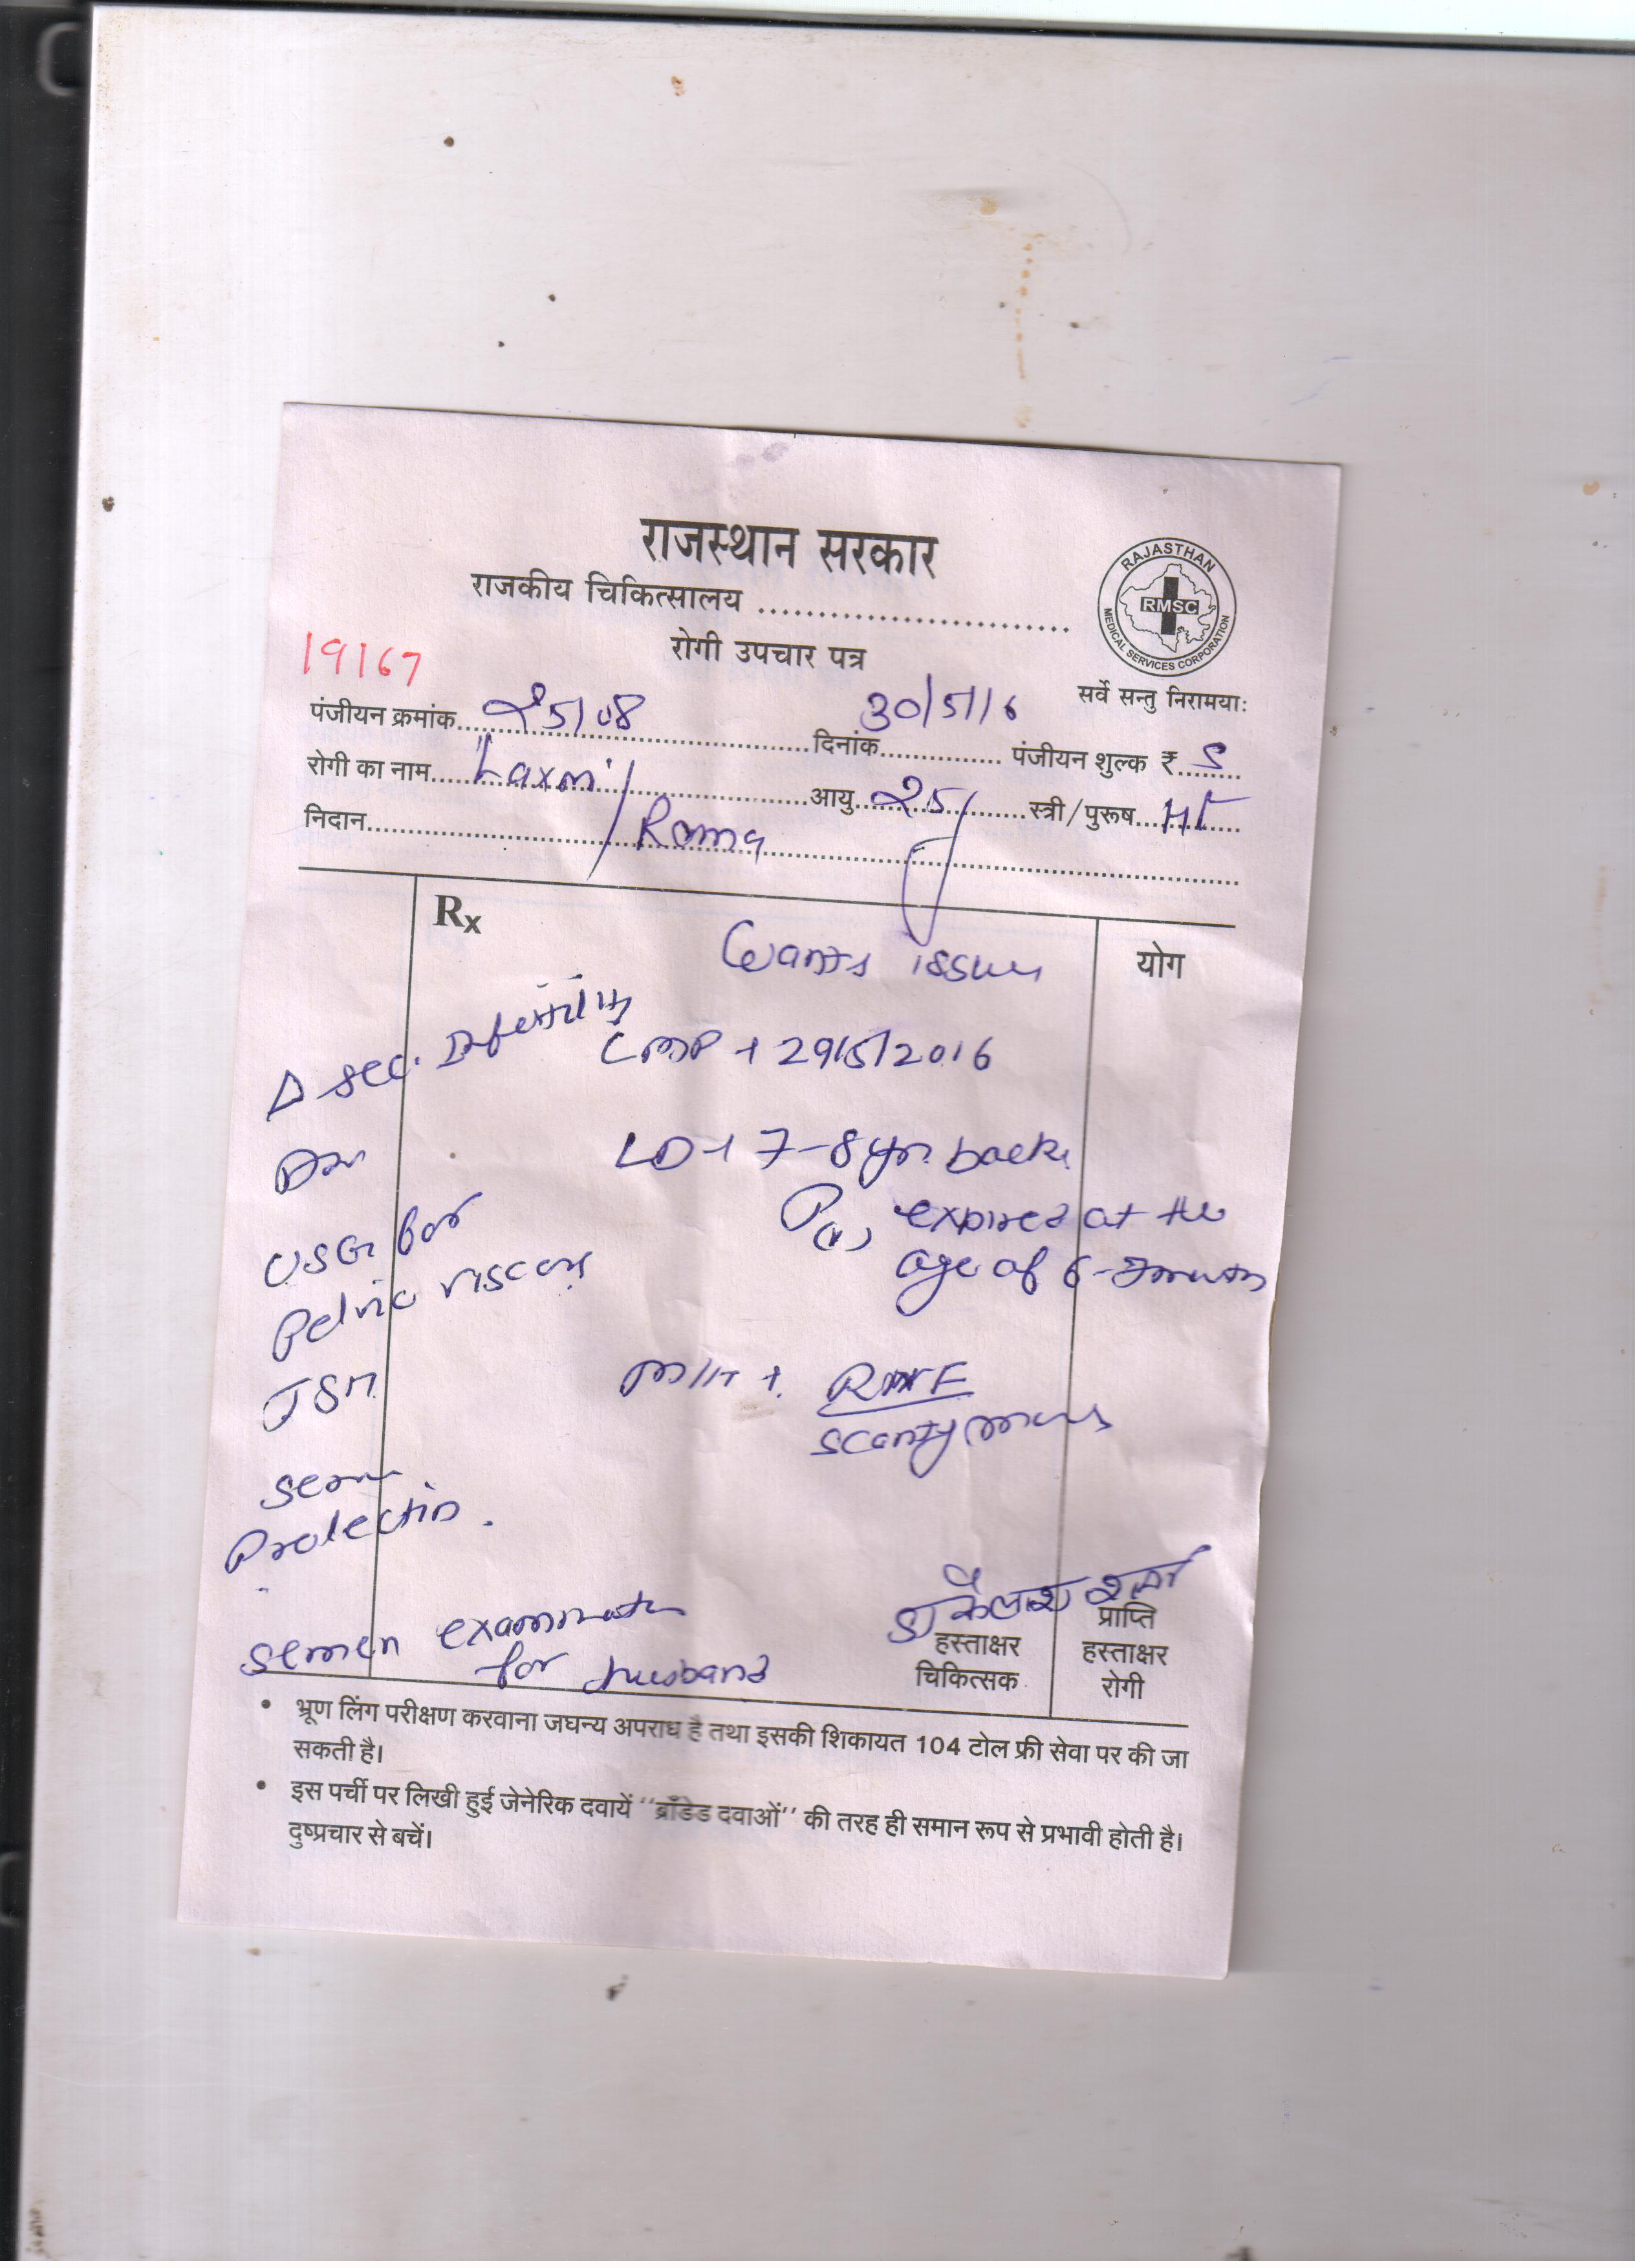 राजस्थान सरकार
राजकीय चिकित्सालय ................................
रोगी उपचार पत्र
RAJASTHAN
RMSC
MEDICAL SERVICES CORPORATION
सर्वे सन्तु निरामयाः
19167
पंजीयन क्रमांक... 25108 ...दिनांक... 30/5/16 ... पंजीयन शुल्क ₹... 5
रोगी का नाम... Laxmi / ...आयु... 25 ...स्त्री/पुरूष...
निदान... Rama
Rx
योग
Wants issue
Δ Sec. Infertility
LMP + 29/5/2016
LD + 7-8 yr. back
USG for
expired at the
Pelvic viscera
age of 6-
M/H + RMNF
scanty menses
Serum
Prolectin.
Semen examination
for husband
डा कैलाश शर्मा
हस्ताक्षर
चिकित्सक
प्राप्ति
हस्ताक्षर
रोगी
• भ्रूण लिंग परीक्षण करवाना जघन्य अपराध है तथा इसकी शिकायत 104 टोल फ्री सेवा पर की जा
सकती है।
• इस पर्ची पर लिखी हुई जेनेरिक दवायें ''ब्राँडेड दवाओं'' की तरह ही समान रूप से प्रभावी होती है।
दुष्प्रचार से बचें।